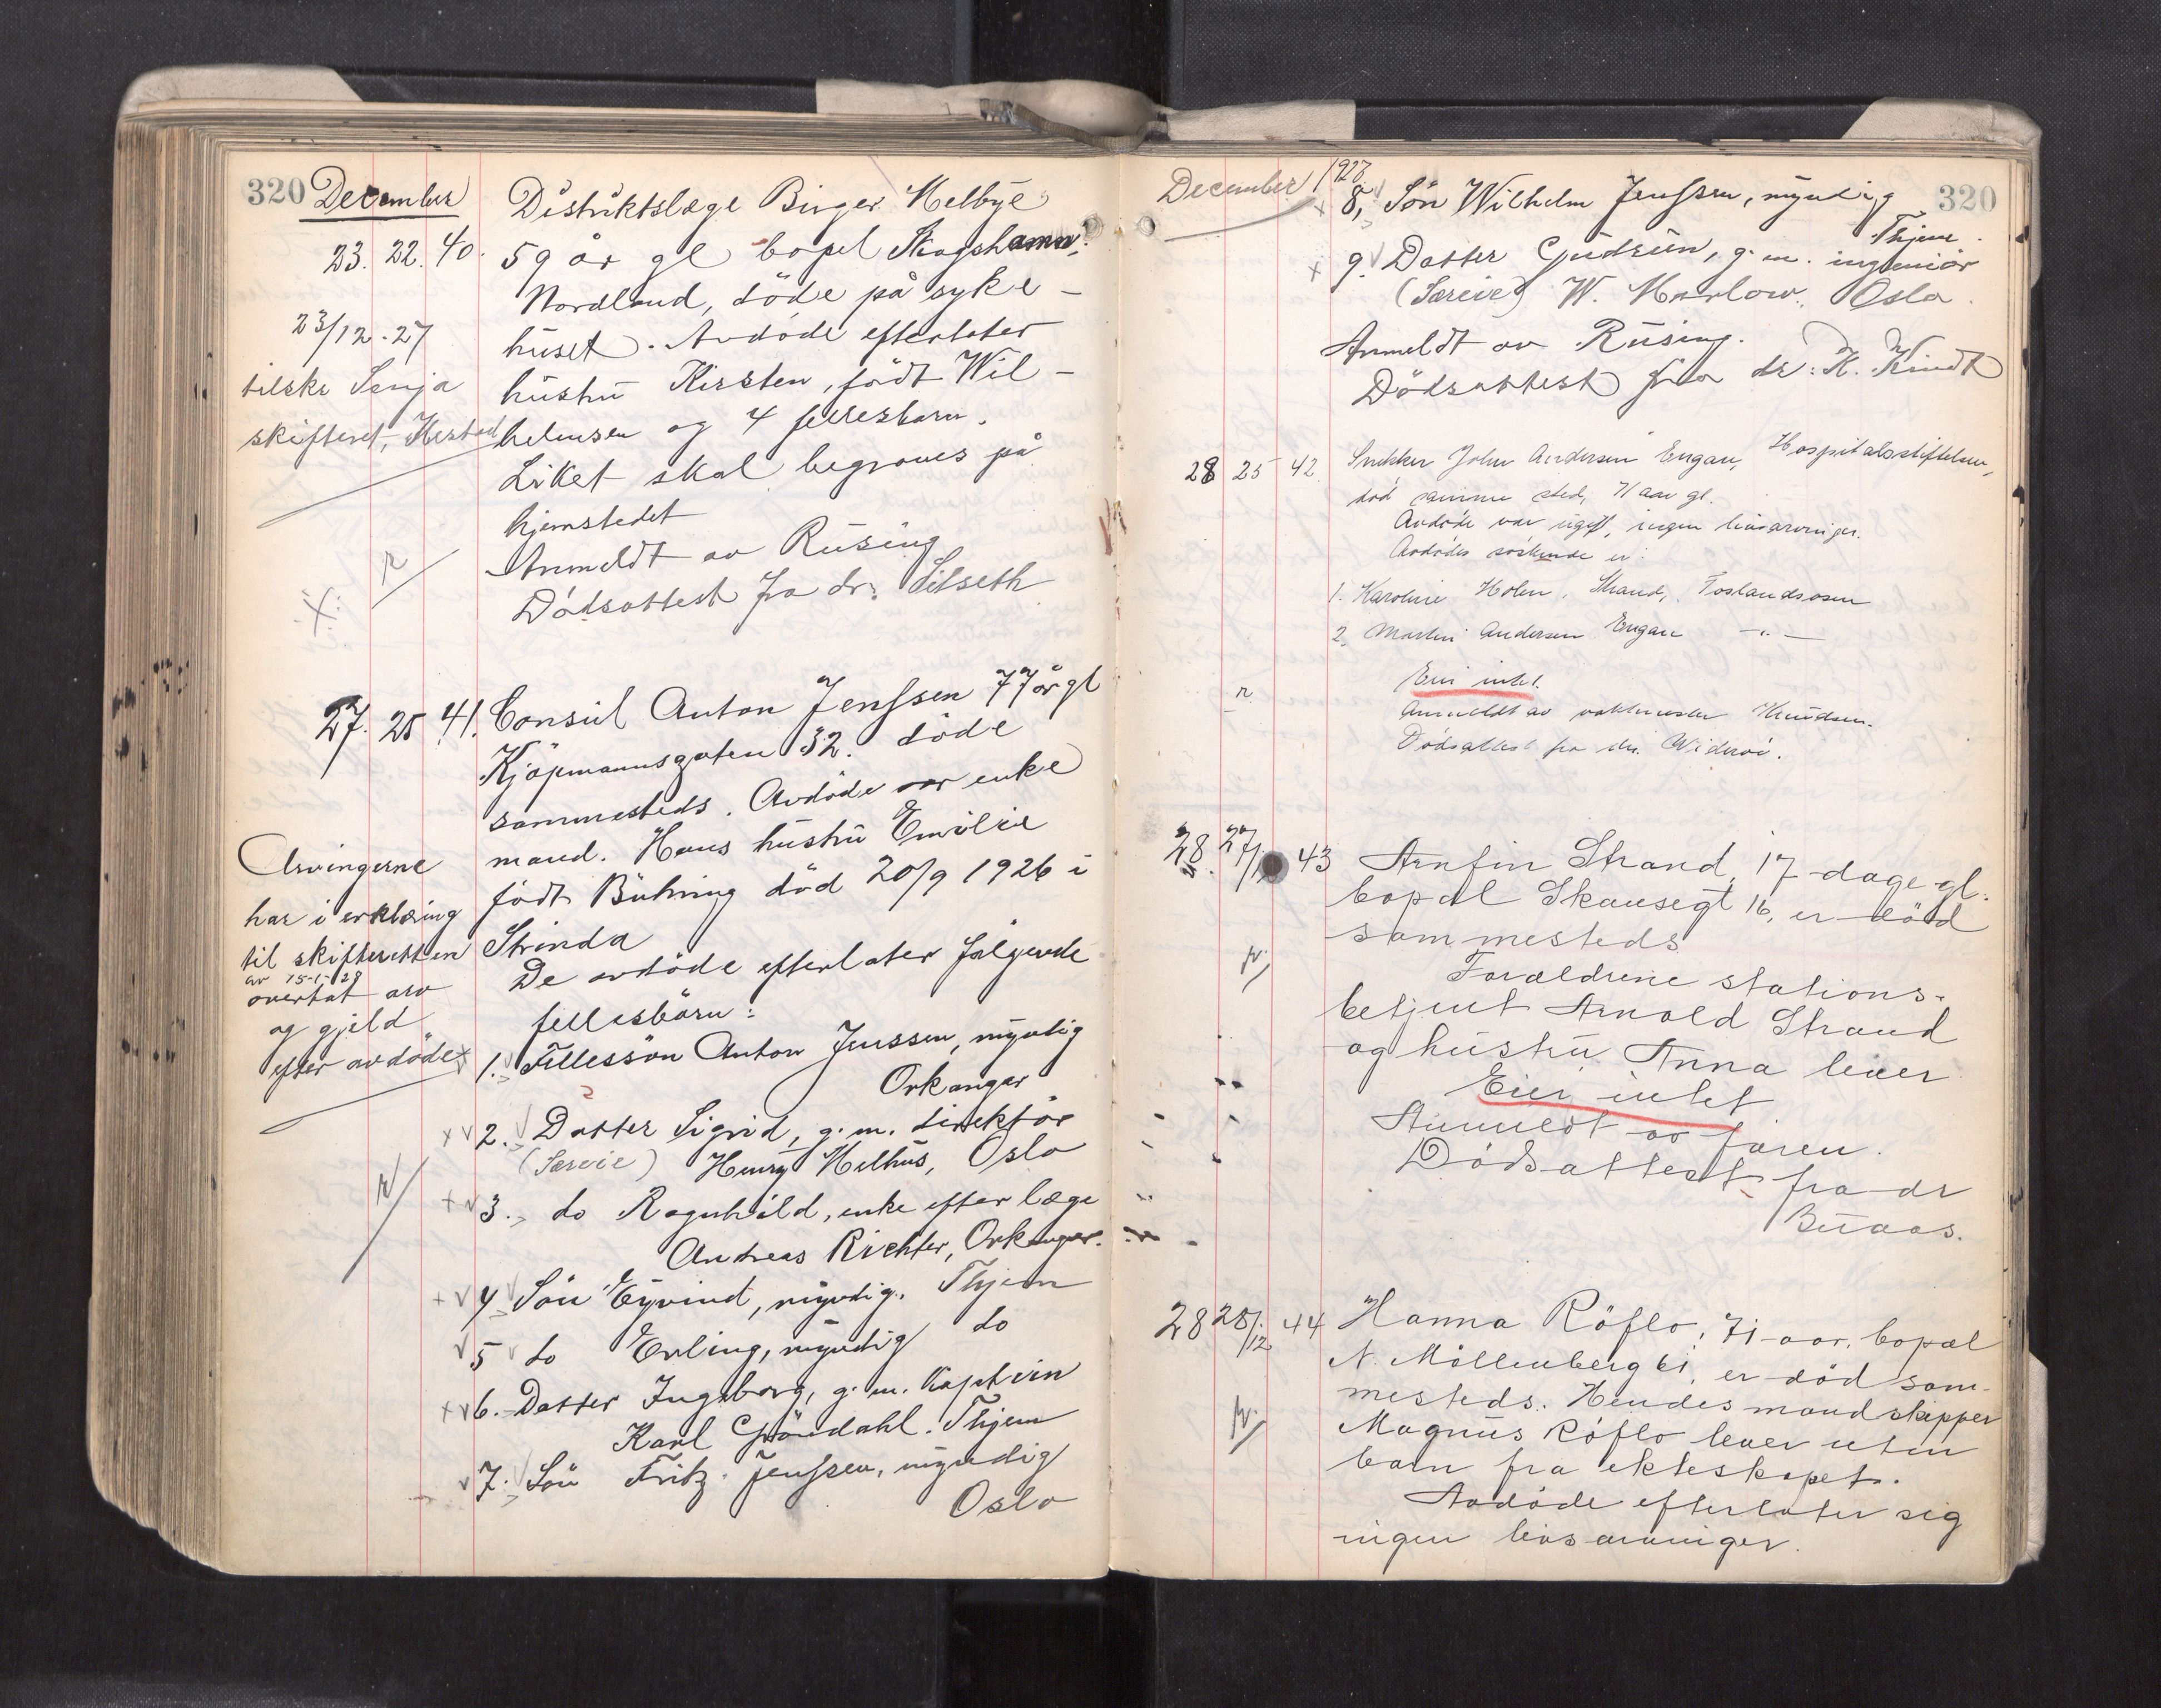 320 December
Distriktslæge Birger Melbye
23. 22. 40. 59 år gl bopel Skogshamn,
Nordland, döde på syke-
huset. Avdöde efterlater
hustru Kirsten, födt Wil-
helmsen og 4 fellesbarn.
Liket skal begraves på
hjemstedet
Anmeldt av Rüsing
Dödsattest fra dr.
23/12.27
tilskr Senja
skifteret,
r
27. 25 41. Consul Anton Jenssen 77 år gl
Kjöpmannsgaten 32. döde
sammesteds. Avdöde var enke
mand. Hans hustru Emilie
födt Bühring död 20/9 1926 i
Strinda
De avdöde efterlater fölgende
fellesbörn:
1. Fellessön Anton Jenssen, myndig
Orkanger
2. Datter Sigrid, g. m. direktör
(Særeie) Henry Melhus, Oslo
3. do Ragnhild, enke efter læge
Andreas Richter, Orkanger.
4 Sön Eyvind, myndig. Thjem
5 do Erling, myndig do
6. Datter Ingeborg, g. m. Kaptein
Karl Gröndahl. Thjem
7. Sön Fritz Jenssen, myndig
Oslo
Arvingerne
har i erklæring
til skifteretten
av 15-1-28
overtat arv
og gjeld
efter avdöde
r
December 1927 320
8, Sön Wilhelm Jenssen, myndig
Thjem.
9. Datter Gudrun, g. m. ingeniör
(Særeie) W. Marlow, Oslo.
Anmeldt av Rüsing.
Dödsattest fra dr. K. Kindt
28 25 42. Snekker John Andersen Engan, Hospitalsstiftelsen,
död samme sted, 71 aar gl.
Avdöde var ugift, ingen livsarvinger.
Avdödes söskende er:
1. Karoline Holen, Strand, Foslandsosen
2. Martin Andersen Engan —"—
Eier intet.
r
Anmeldt av vaktmester Knudsen.
Dödsattest fra dr. Wideröe.
28. 27/12 43 Arnfin Strand, 17 dage gl.
bopæl Skansegt 16, er död
sammesteds
Forældrene stations-
betjent Arnold Strand
og hustru Anna lever
Eier intet
Anmeldt av faren.
Dödsattest fra dr
Buaas.
r
28 25/12 44 Hanna Röflo, 71 aar, bopæl
N. Möllenberg 61, er död sam-
mesteds. Hendes mand skipper
Magnus Röflo lever uten
barn fra ekteskapet.
Avdöde efterlater sig
ingen livsarvinger.
r